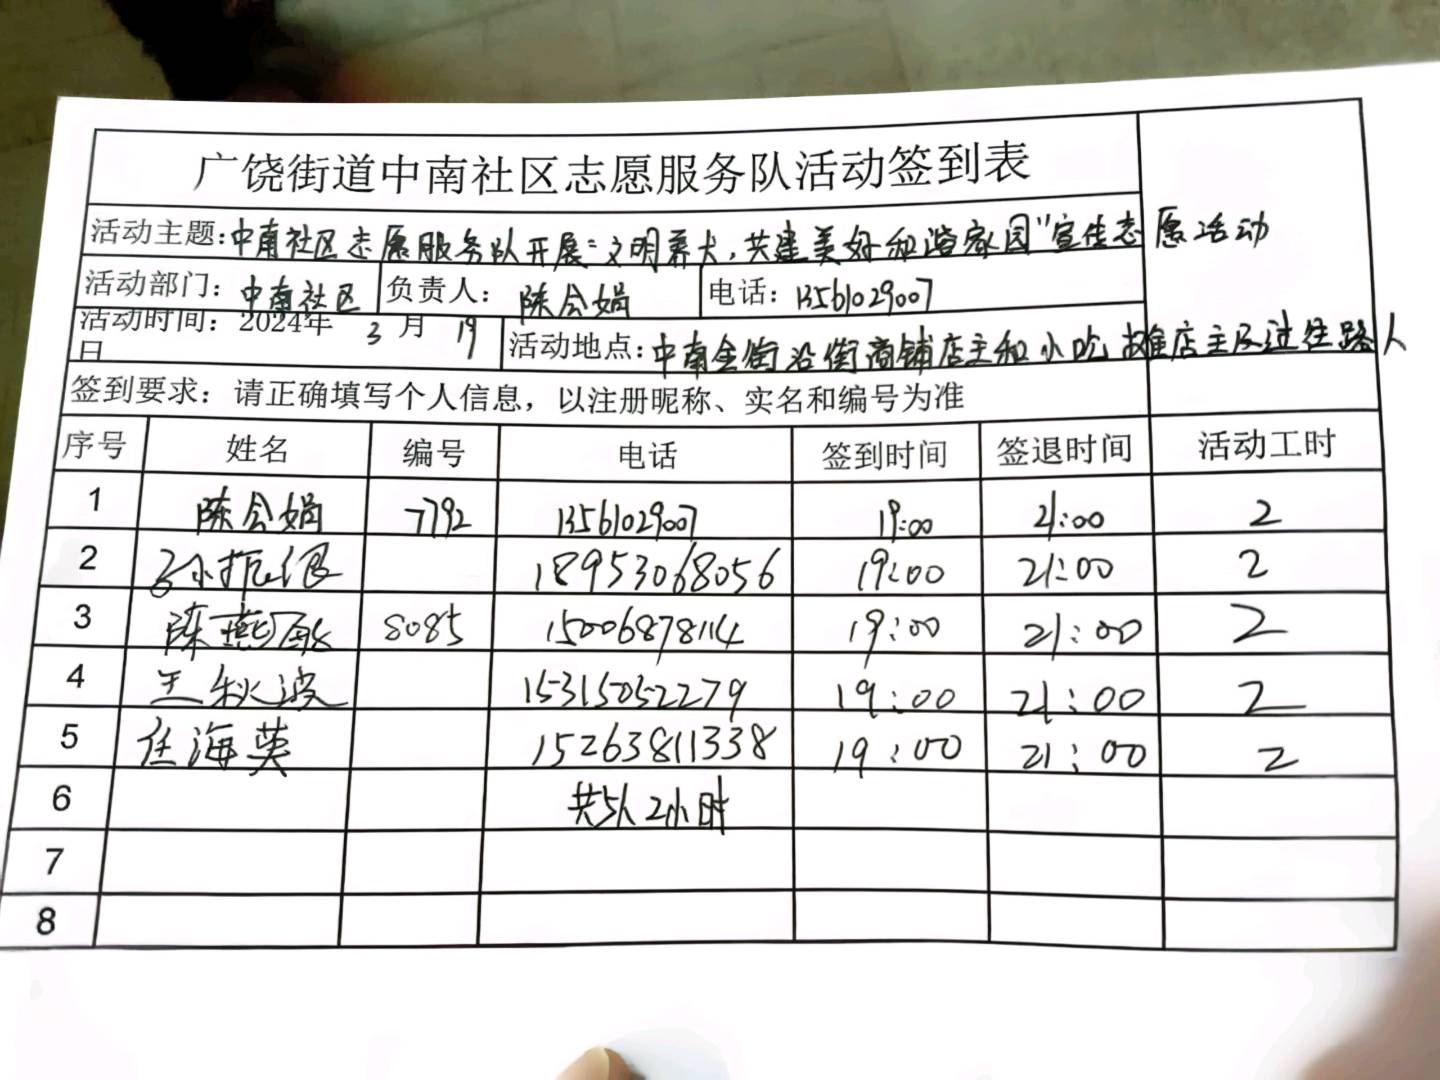 广饶街道中南社区志愿服务队活动签到表
活动主题:中南社区志愿服务队开展"文明养犬,共建美好和谐家园"宣传志愿活动
活动部门: 中南社区 负责人: 陈会娟 电话: 13561029007
活动时间: 2024年 3 月 19
日
活动地点: 中南金街沿街商铺店主和小吃摊店主及过往路人
签到要求: 请正确填写个人信息, 以注册昵称、实名和编号为准
序号 姓名 编号 电话 签到时间 签退时间 活动工时
1 陈会娟 7792 13561029007 19:00 21:00 2
2 18953068056 19:00 21:00 2
3 陈燕 8085 15006878114 19:00 21:00 2
4 王秋波 15315052279 19:00 21:00 2
5 任海英 15263811338 19:00 21:00 2
6 共5人2小时
7
8